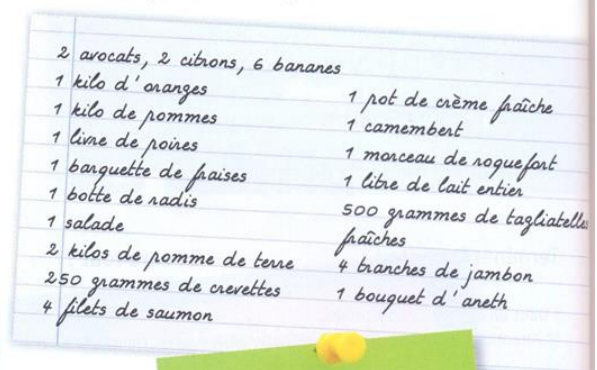 2 avocats, 2 citrons, 6 bananes
1 kilo d'oranges
1 kilo de pommes
1 livre de poires
1 barquette de fraises
1 botte de radis
1 salade
2 kilos de pomme de terre
250 grammes de crevettes
4 filets de saumon
1 pot de crème fraîche
1 camembert
1 morceau de roquefort
1 litre de lait entier
500 grammes de tagliatelles
fraîches
4 tranches de jambon
1 bouquet d'aneth